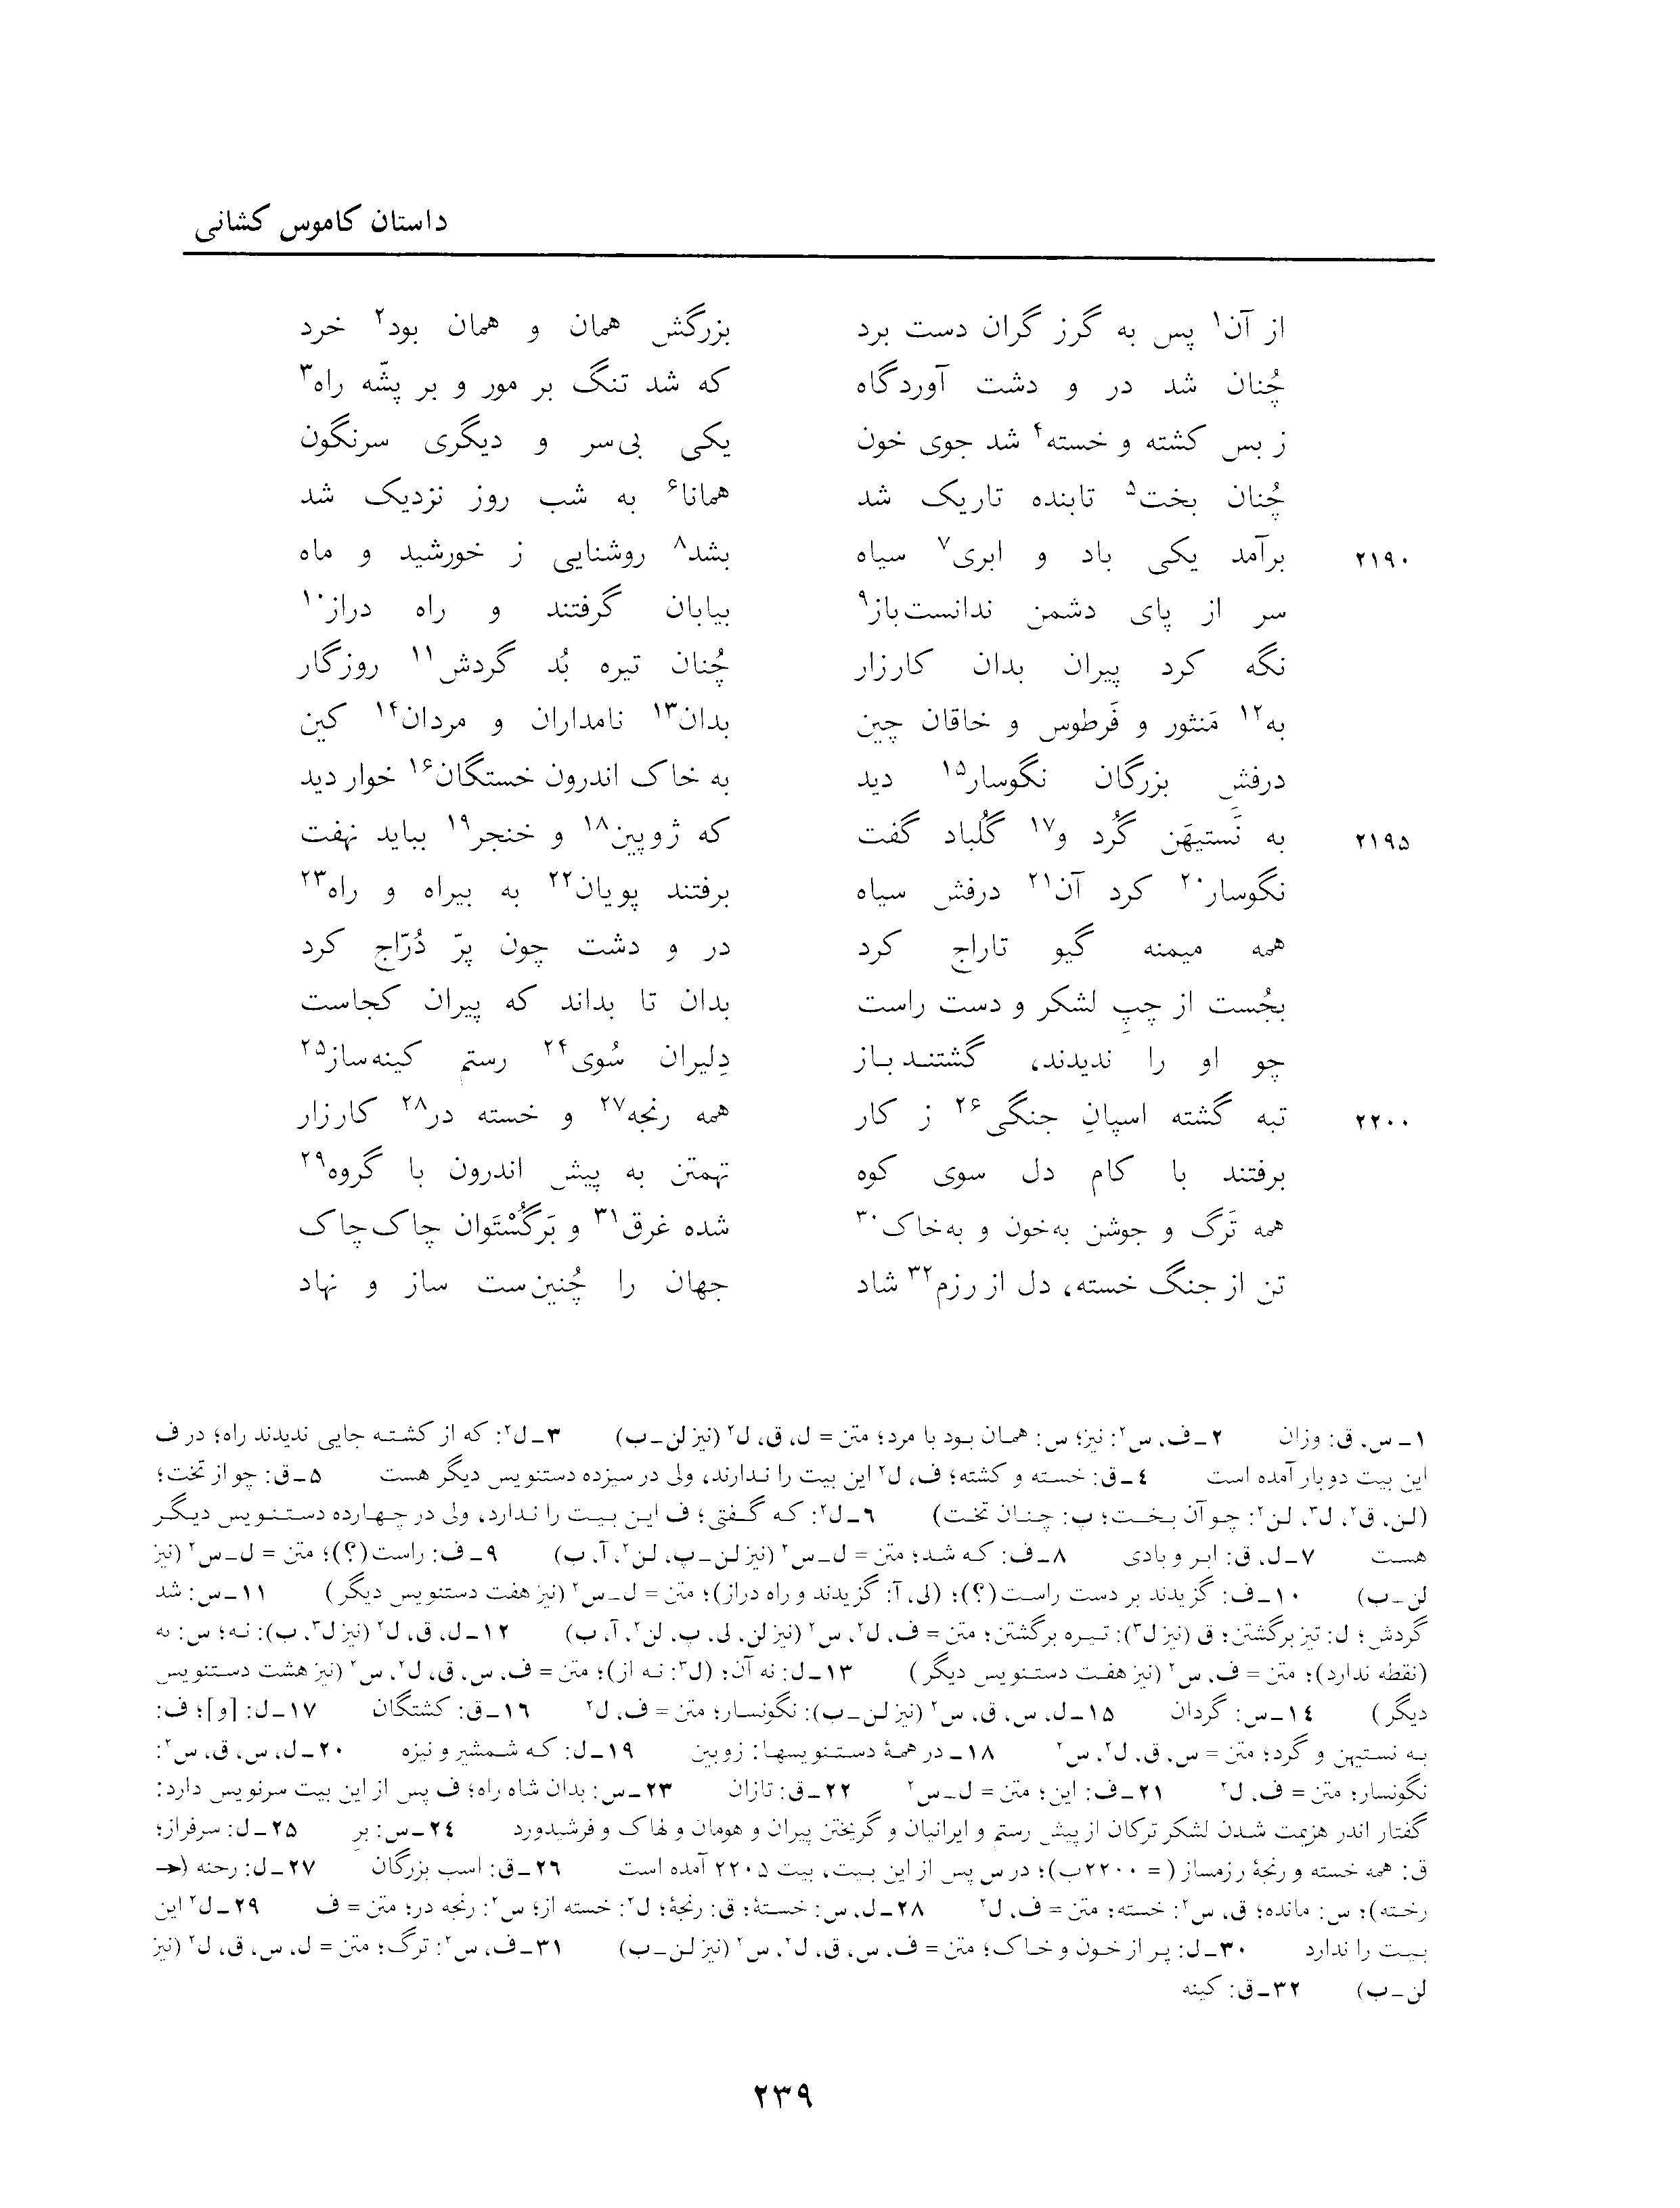 داستان کاموس کشانی
از آن۱ پس به گرز گران دست برد بزرگش همان و همان بود۲ خرد
چُنان شد در و دشت آوردگاه که شد تنگ بر مور و بر پشّه راه۳
ز بس کشته و خسته۴ شد جوی خون یکی بی‌سر و دیگری سرنگون
چُنان بخت۵ تابنده تاریک شد همانا۶ به شب روز نزدیک شد
۲۱۹۰ برآمد یکی باد و ابری۷ سیاه بشد۸ روشنایی ز خورشید و ماه
سر از پای دشمن ندانست‌باز۹ بیابان گرفتند و راه دراز۱۰
نگه کرد پیران بدان کارزار چُنان تیره بُد گردش۱۱ روزگار
به۱۲ مَنثور و فَرطوس و خاقان چین بدان۱۳ نامداران و مردان۱۴ کین
درفشِ بزرگان نگوسار۱۵ دید به خاک اندرون خستگان۱۶ خوار دید
۲۱۹۵ به نَستیهَن گُرد و۱۷ گُلباد گفت که ژوپین۱۸ و خنجر۱۹ بباید نهفت
نگوسار۲۰ کرد آن۲۱ درفش سیاه برفتند پویان۲۲ به بیراه و راه۲۳
همه میمنه گیو تاراج کرد در و دشت چون پرّ دُرّاج کرد
بجُست از چپِ لشکر و دست راست بدان تا بداند که پیران کجاست
چو او را ندیدند، گشتند باز دِلیران سُوی۲۴ رستم کینه‌ساز۲۵
۲۲۰۰ تبه گشته اسپانِ جنگی۲۶ ز کار همه رنجه۲۷ و خسته در۲۸ کارزار
برفتند با کام دل سوی کوه تهمتن به پیش اندرون با گروه۲۹
همه تَرگ و جوشن به‌خون و به‌خاک۳۰ شده غرق۳۱ و بَرگُسْتَوان چاک‌چاک
تن از جنگ خسته، دل از رزم۳۲ شاد جهان را چُنین‌ست ساز و نهاد
۱ـ س، ق: وزان ۲ـ ف، س۲: نیز؛ س: همان بود با مرد؛ متن = ل، ق، ل۲ (نیز لن ـ ب) ۳ـ ل۲: که از کشته جایی ندیدند راه؛ در ف
این بیت دوبار آمده است ۴ـ ق: خسته و کشته؛ ف، ل۲ این بیت را ندارند، ولی در سیزده دستنویس دیگر هست ۵ـ ق: چو از تخت؛
(لن، ق۲، ل۳، لن۲: چو آن بخت؛ پ: چنان تخت) ۶ـ ل۲: که گفتی؛ ف این بیت را ندارد، ولی در چهارده دستنویس دیگر
هست ۷ـ ل، ق: ابر و بادی ۸ـ ف: که شد؛ متن = ل ـ س۲ (نیز لن ـ پ، لن۲، آ، ب) ۹ـ ف: راست(؟)؛ متن = ل ـ س۲ (نیز
لن ـ ب) ۱۰ـ ف: گزیدند بر دست راست(؟)؛ (لی، آ: گزیدند و راه دراز)؛ متن = ل ـ س۲ (نیز هفت دستنویس دیگر) ۱۱ـ س: شد
گردش؛ ل: تیز برگشتن؛ ق (نیز ل۳): تیره برگشتن؛ متن = ف، ل۲، س۲ (نیز لن، لی، پ، لن۲، آ، ب) ۱۲ـ ل، ق، ل۲ (نیز ل۳، ب): نه؛ س: ںه
(نقطه ندارد)؛ متن = ف، س۲ (نیز هفت دستنویس دیگر) ۱۳ـ ل: نه آن؛ (ل۳: نه از)؛ متن = ف، س، ق، ل۲، س۲ (نیز هشت دستنویس
دیگر) ۱۴ـ س: گردان ۱۵ـ ل، س، ق، س۲ (نیز لن ـ ب): نگونسار؛ متن = ف، ل۲ ۱۶ـ ق: کشتگان ۱۷ـ ل: [و]؛ ف:
به نستیهن و گرد؛ متن = س، ق، ل۲، س۲ ۱۸ـ در همهٔ دستنویسها: زوبین ۱۹ـ ل: که شمشیر و نیزه ۲۰ـ ل، س، ق، س۲:
نگونسار؛ متن = ف، ل۲ ۲۱ـ ف: این؛ متن = ل ـ س۲ ۲۲ـ ق: تازان ۲۳ـ س: بدان شاه راه؛ ف پس از این بیت سرنویس دارد:
گفتار اندر هزیمت شدن لشکر ترکان از پیش رستم و ایرانیان و گریختن پیران و هومان و لهاک و فرشیدورد ۲۴ـ س: برِ ۲۵ـ ل: سرفراز؛
ق: همه خسته و رنجهٔ رزمساز (= ۲۲۰۰ب)؛ در س پس از این بیت، بیت ۲۲۰۵ آمده است ۲۶ـ ق: اسب بزرگان ۲۷ـ ل: رحنه (←
رخته)؛ س: مانده؛ ق، س۲: خسته؛ متن = ف، ل۲ ۲۸ـ ل، س: خستهٔ؛ ق: رنجهٔ؛ ل۲: خسته از؛ س۲: رنجه در؛ متن = ف ۲۹ـ ل۲ این
بیت را ندارد ۳۰ـ ل: پر از خون و خاک؛ متن = ف، س، ق، ل۲، س۲ (نیز لن ـ ب) ۳۱ـ ف، س۲: ترگ؛ متن = ل، س، ق، ل۲ (نیز
لن ـ ب) ۳۲ـ ق: کینه
۲۳۹